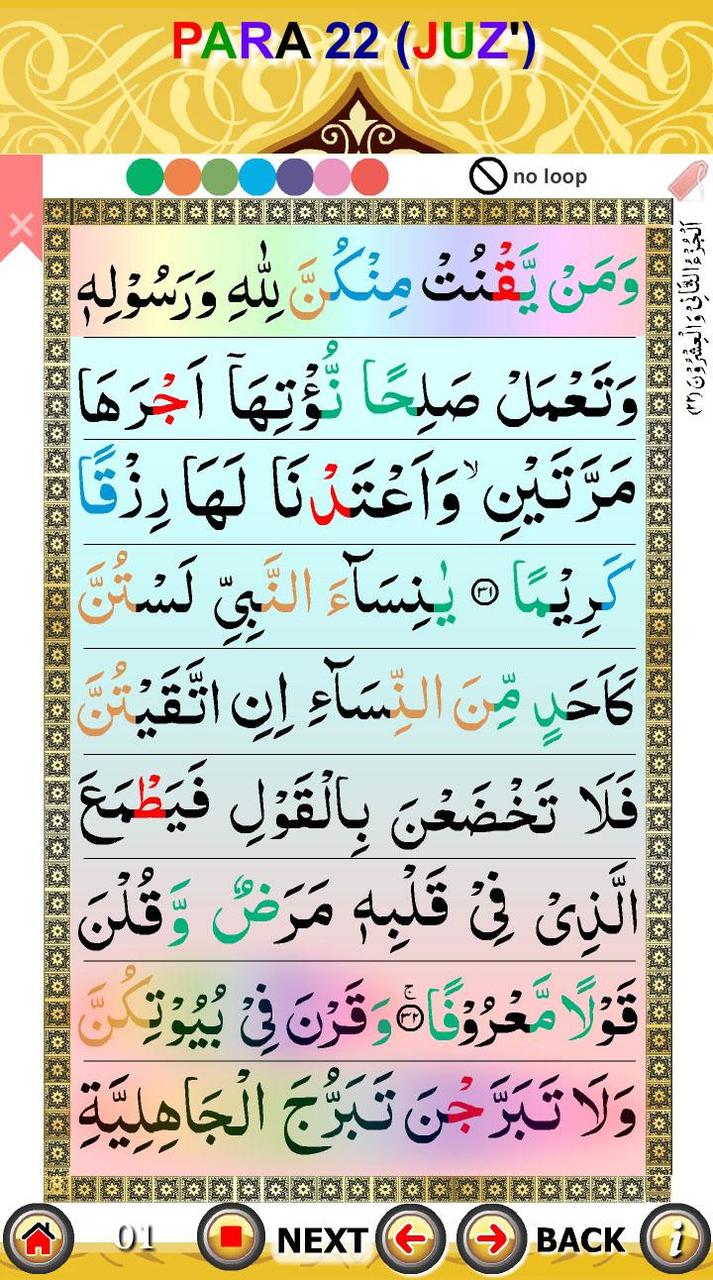 PARA 22 (JUZ')
no loop
اَلْجُزْءُ الثَّانِیْ وَالْعِشْرُوْنَ (٢٢)
وَمَنْ یَّقْنُتْ مِنْكُنَّ لِلّٰهِ وَرَسُوْلِهٖ
وَتَعْمَلْ صَلِحًا نُّؤْتِهَاۤ اَجْرَهَا
مَرَّتَیْنِ ۙ وَاَعْتَدْنَا لَهَا رِزْقًا
كَرِیْمًا ﴿٣١﴾ یٰنِسَآءَ النَّبِیِّ لَسْتُنَّ
كَاَحَدٍ مِّنَ النِّسَآءِ اِنِ اتَّقَیْتُنَّ
فَلَا تَخْضَعْنَ بِالْقَوْلِ فَیَطْمَعَ
الَّذِیْ فِیْ قَلْبِهٖ مَرَضٌ وَّقُلْنَ
قَوْلًا مَّعْرُوْفًا ﴿٣٢﴾ ۚ وَقَرْنَ فِیْ بُیُوْتِكُنَّ
وَلَا تَبَرَّجْنَ تَبَرُّجَ الْجَاهِلِیَّةِ
01 NEXT BACK i